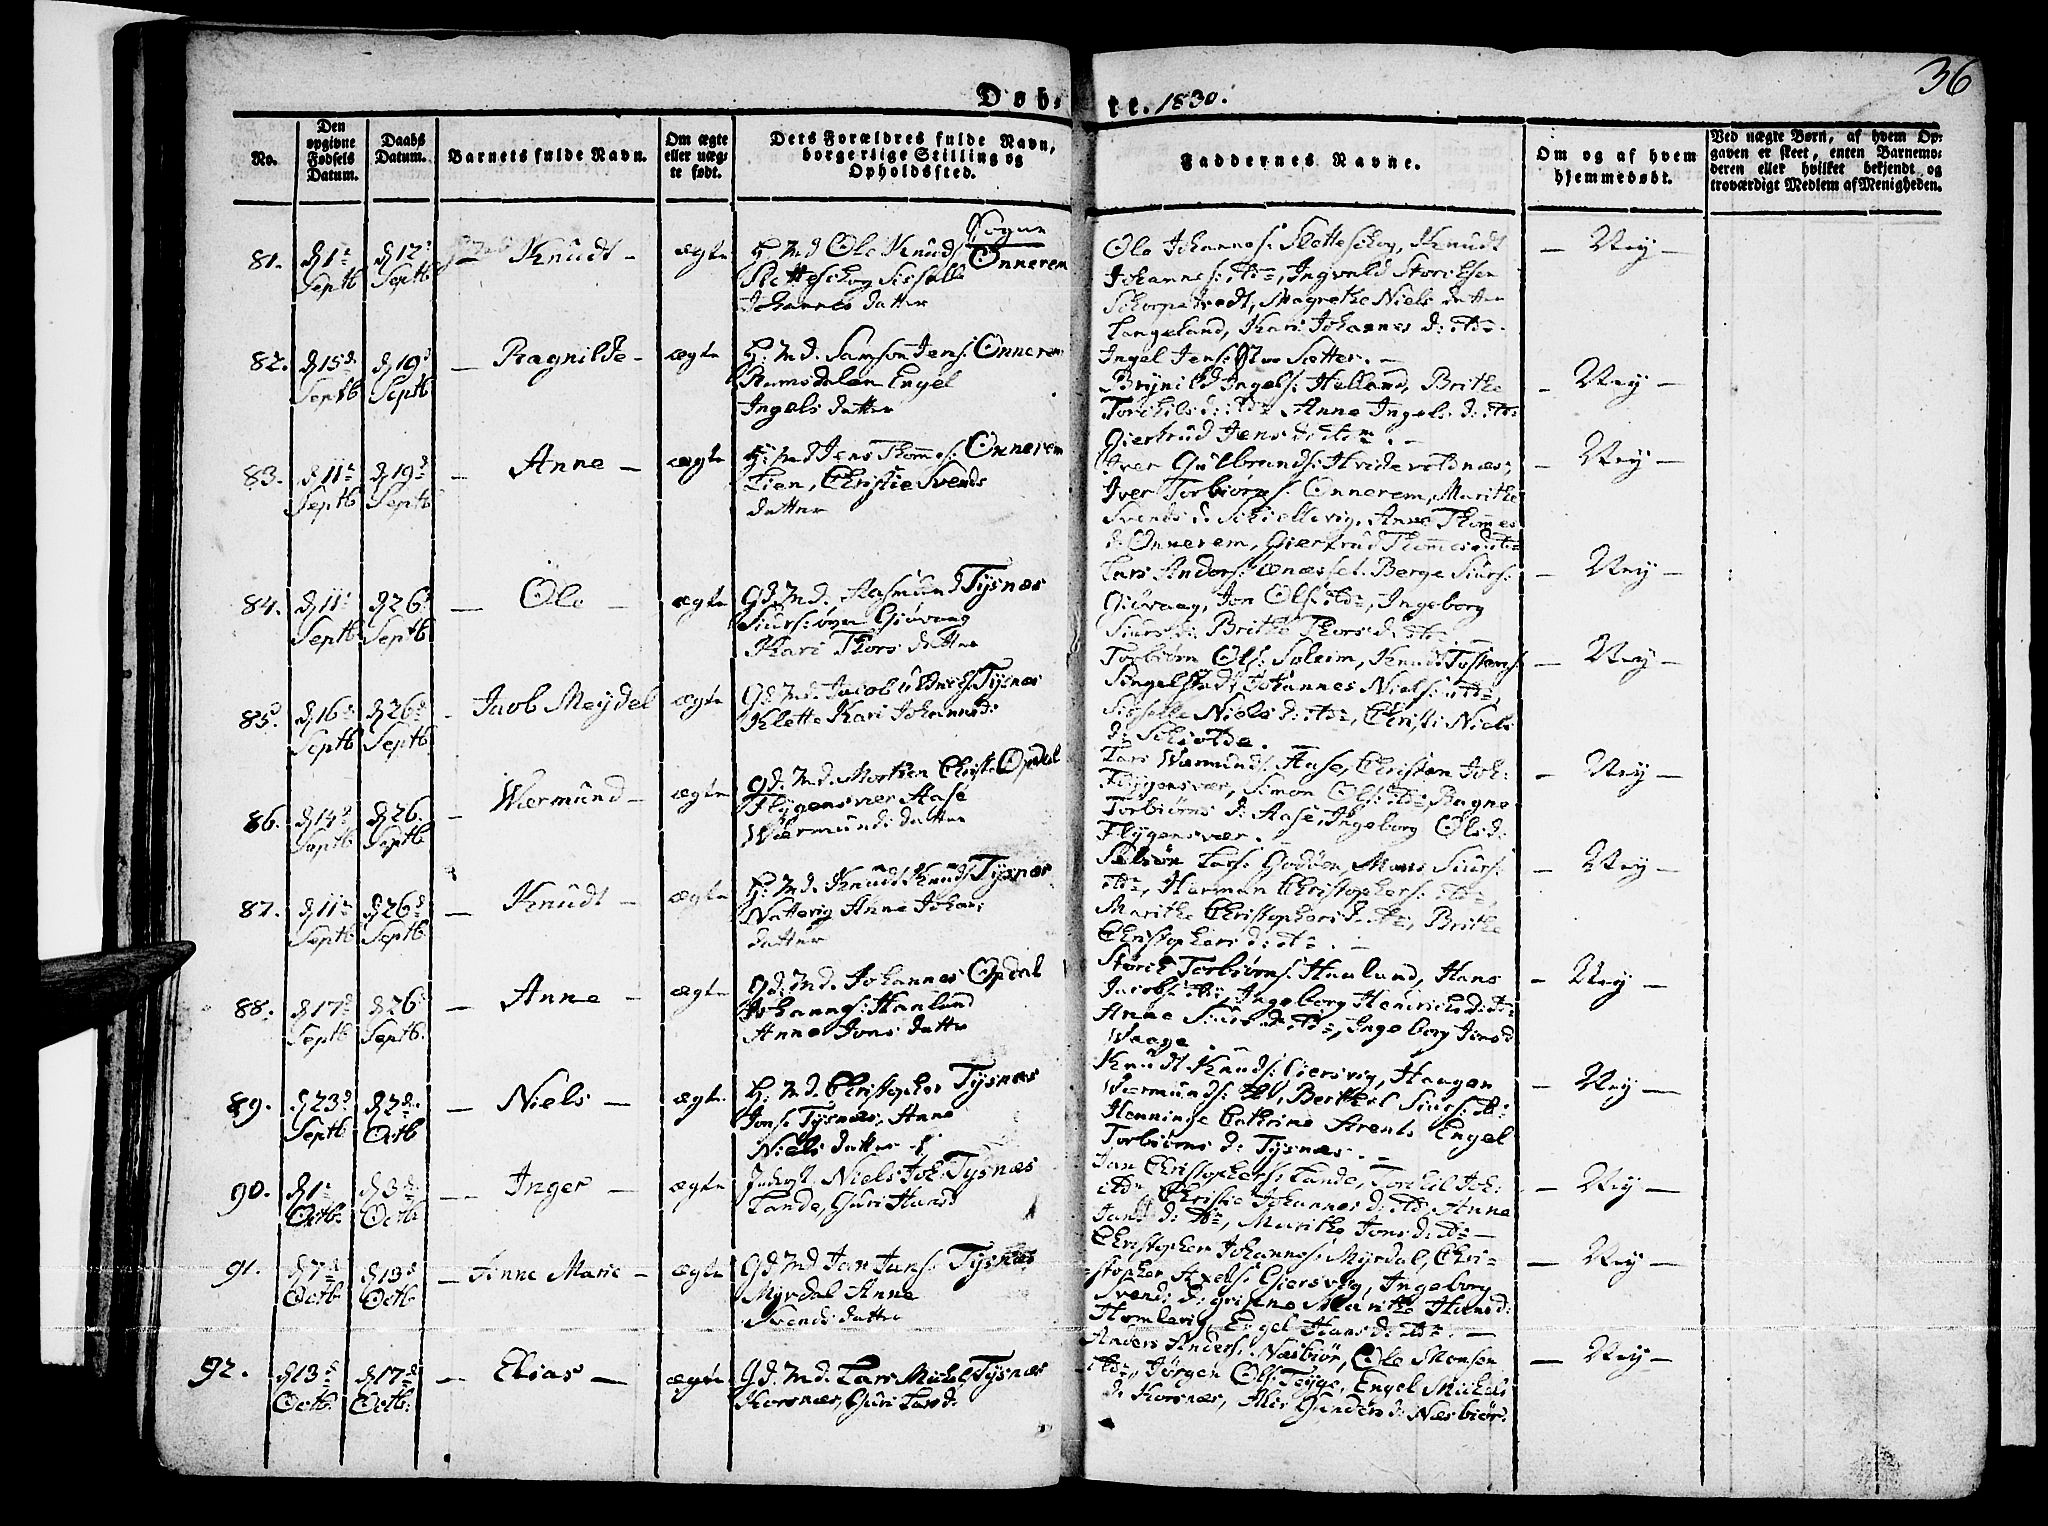 36
Døb-
te. 1830.
No.
Den
opgivne
Fødsels
Datum.
Daabs
Datum.
Barnets fulde Navn.
Om ægte
eller uæg-
te født.
Dets Forældres fulde Navn,
borgerlige Stilling og
Opholdssted.
Faddernes Navne.
Om og af hvem
hjemmedøbt.
Ved uægte Børn, af hvem Op-
gaven er skeet, enten Barnemo-
deren eller hvilket bekjendt og
troværdigt Medlem af Menigheden.
81.
d 1
Septb
d 12
Septb
Knudt
ægte
Sogne
H: Md Ole Knuds Onnerem
Sletteschog Sisselle
Johannes datter
Ole Johannes: Sletteschog, Knudt
Johannes: itd, Ingvald Storchsen
Schorpetvedt, Magrethe Niels datter
Langeland, Kari Johannes d: itd
Ney
82.
d 15d
Septb
d 19
Septb
Ragnilde
ægte
H: Md. Samson Jens: Onnerem
Ramsdalen Engel
Ingels datter
Ingel Jens: Sætter.
Brynild Ingels: Helland, Brithe
Torchils d: itd Anne Ingels d: itd
Giertrud Jens d: itd
Ney
83.
d 11
Septb
d 19
Septb
Anne
ægte
H: Md Jens Thomes: Onnerem
Lien, Christie Svends
datter
Iver Gulbrands: Hvidevoldnæs,
Iver Torbiørns: Onnerem, Marithe
Svends d. Schiellevig, Anne Thomes
d. Onnerem, Giertrud Thomes d: itd
Ney
84.
d 11
Septb
d 26
Septb
Ole
ægte
Gd. Md. Rasmund Tysnæs
Siursøn Giøvaag
Kari Thors datter
Lars Anders: Berge Siurs:
Giøvaag, Jon Ols: itd, Ingeborg
Siurs d: Brithe Thors d: itd
Ney
85.
d 16
Septb
d 26
Septb
Jacob Meydel
ægte
Gd. Md. Jacob Tysnæs
Klette Kari Johannesd:
Torbiørn Ols: Soleim, Knudt Tostens:
Singelstad, Johannes Niels: itd,
Sisselle Niels d: itd, Christi Niels
d:
Ney
86.
d 14
Septb
d 26.
Septb
Wærmund
ægte
Gd. Md. Morten Christ: Opdal
Flygensvær Aase
Wærmunds datter
Lars Wærmunds Aase, Christen Joh:
Flygensvær, Simon Ols: itd, Ragne
Torbiørns d: Aase, Ingeborg Ols d:
Flygensvær.
Ney
87.
d 11
Septb
d 26
Septb
Knudt
ægte
H: Md. Knudt Knuds Tysnæs
Nattevig Anne Johans
datter
Lars: Godøen, Mons Siurs:
itd, Herman Christophers: itd,
Marithe Christophers d: itd, Brithe
Christophers d: itd.
Ney
88.
d 17
Septb
d 26
Septb.
Anne
ægte
Gd. Md. Johannes Opdal
Johannes: Haaland
Anne Jons datter
Størch Torbiørns: Haaland, Hans
Jacobs: itd, Ingeborg Henrichs d: itd
Anne Siurs d: itd, Ingeborg Jens d
Waage
Ney
89.
d 23
Septb
d 2
Octb
Niels
ægte
H: Md. Christopher Tysnæs
Jons: Tysnæs, Anne
Niels datter
Knudt Knuds: Giersvig, Haagen
Wærmunds: itd, Berthel Siurs: itd
Henninge Cathrine Arents Engel
Torbiørns d: Tysnæs.
Ney
90.
d 1
Octb
d 3
Octb
Inger
ægte
Inderst. Niels Joh: Tysnæs
Lande, Guri Hans
Jan Christophers: Lande, Torchil Joh:
itd Christie Johannes d: itd, Anne
Jans d: itd, Marithe Jons d: itd
Ney
91.
d 7
Octb
d 13
Octb
Anne Marie
ægte
Gd Md Jan Jans: Tysnæs
Myrdal Anne
Svends datter
Christopher Johannes: Myrdal, Chri-
stopher Axels: Giersvig, Ingeborg
Svends d: Marithe Hans d:
Humlevig, Engel Hans d: itd
Ney
92.
d 13
Octb
d 17
Octb.
Elias
ægte
Gd. Md. Lars Michel: Tysnæs
Korsnæs, Guri Lars d:
Anders Anders: Næsbiør, Ole Monsen
itd, Jørgen Ols: Engel Michels
d: Korsnæs, Gunders d: Næsbiør.
Ney